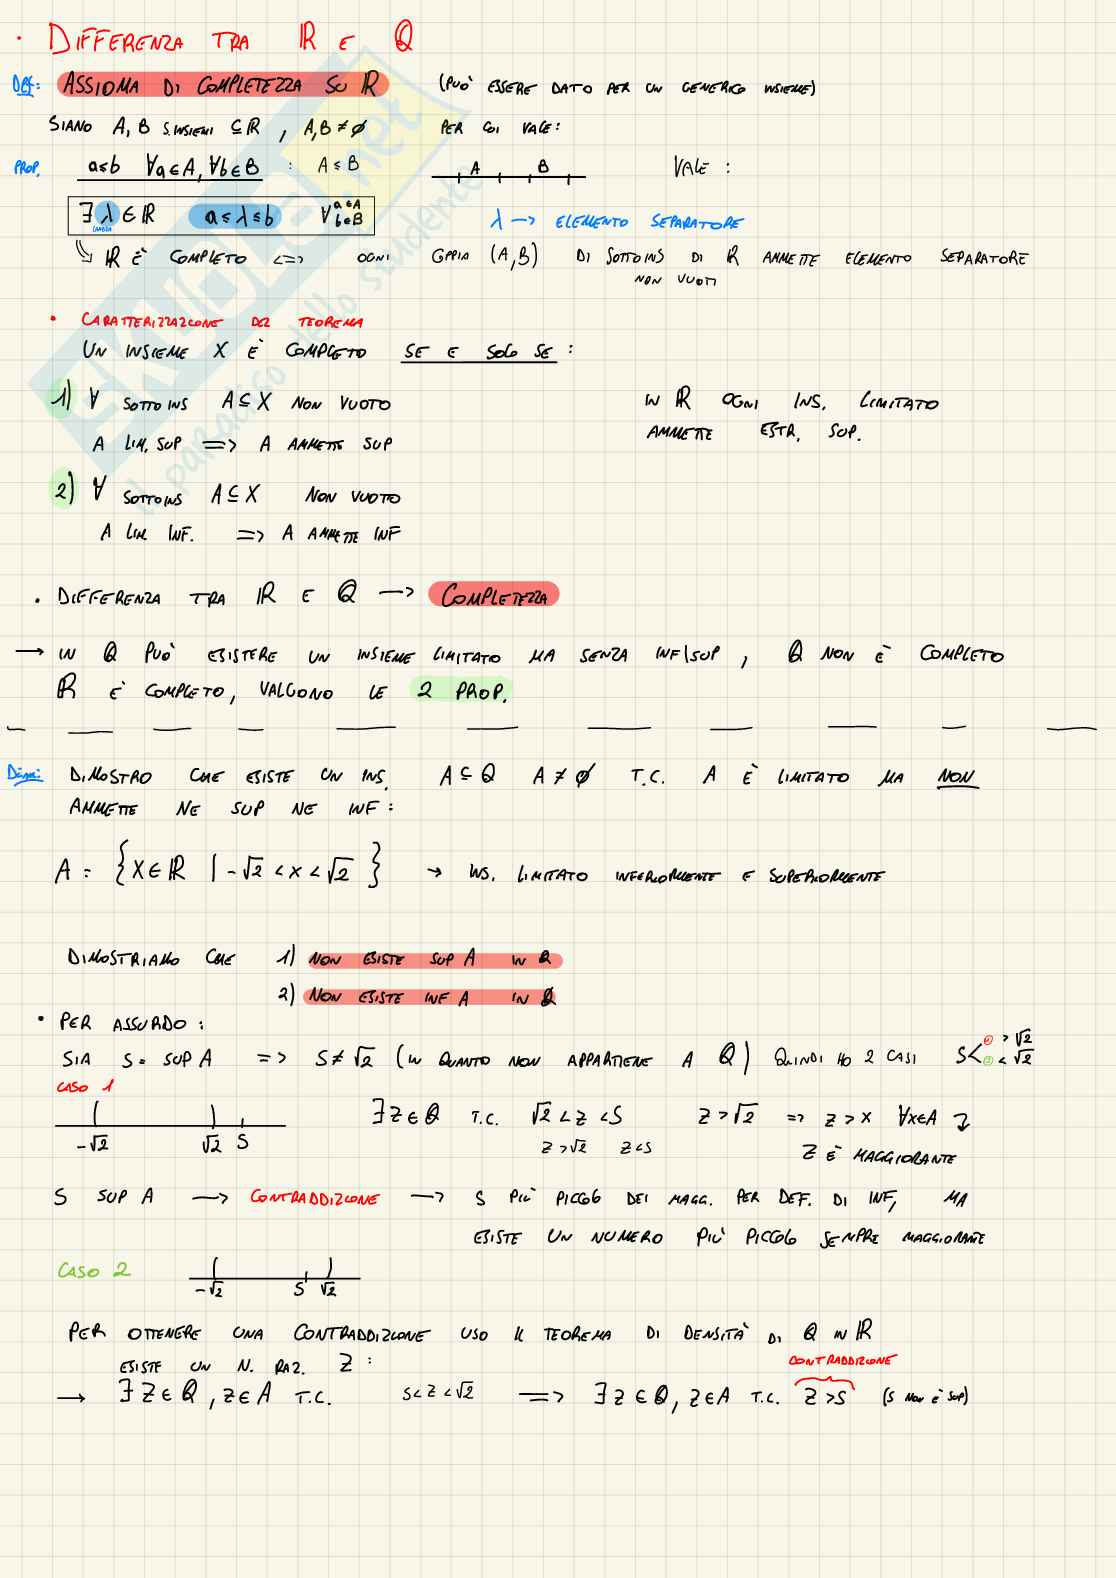 · DIFFERENZA TRA ℝ E ℚ
DEF: ASSIOMA DI COMPLETEZZA SU ℝ (PUÒ ESSERE DATO PER UN GENERICO INSIEME)
SIANO A, B S.INSIEMI ⊆ ℝ , A,B ≠ ∅ PER CUI VALE:
PROP. a≤b ∀a∈A, ∀b∈B : A ≤ B A B VALE :
∃ λ ∈ ℝ a ≤ λ ≤ b ∀ a∈A b∈B
LAMBDA
λ → ELEMENTO SEPARATORE
ℝ È COMPLETO <=> OGNI CPPIA (A,B) DI SOTTOINS DI ℝ AMMETTE ELEMENTO SEPARATORE
NON VUOTI
· CARATTERIZZAZIONE DEL TEOREMA
UN INSIEME X È COMPLETO SE E SOLO SE :
1) ∀ SOTTOINS A ⊆ X NON VUOTO IN ℝ OGNI INS. LIMITATO
A LIM. SUP => A AMMETTE SUP AMMETTE ESTR. SUP.
2) ∀ SOTTOINS A ⊆ X NON VUOTO
A LIM INF. => A AMMETTE INF
· DIFFERENZA TRA ℝ E ℚ → COMPLETEZZA
→ IN ℚ PUÒ ESISTERE UN INSIEME LIMITATO MA SENZA INF/SUP , ℚ NON È COMPLETO
ℝ È COMPLETO, VALGONO LE 2 PROP.
Dim: DIMOSTRO CHE ESISTE UN INS. A ⊆ ℚ A ≠ ∅ T.C. A È LIMITATO MA NON
AMMETTE NE SUP NE INF :
A = { X ∈ ℝ | -√2 < x < √2 } → INS. LIMITATO INFERIORMENTE E SUPERIORMENTE
DIMOSTRIAMO CHE 1) NON ESISTE SUP A IN ℚ
2) NON ESISTE INF A IN ℚ
· PER ASSURDO :
SIA S = SUP A => S ≠ √2 (IN QUANTO NON APPARTIENE A ℚ) QUINDI HO 2 CASI S < ① > √2 ② < √2
CASO 1
-√2 √2 S
∃ Z ∈ ℚ T.C. √2 < Z < S Z > √2 => Z > X ∀x∈A
Z > √2 Z < S Z È MAGGIORANTE
S SUP A → CONTRADDIZIONE → S PIÙ PICCOLO DEI MAGG. PER DEF. DI INF, MA
ESISTE UN NUMERO PIÙ PICCOLO SEMPRE MAGGIORANTE
CASO 2
-√2 S √2
PER OTTENERE UNA CONTRADDIZIONE USO IL TEOREMA DI DENSITÀ DI ℚ IN ℝ
ESISTE UN N. RAZ. Z :
CONTRADDIZIONE
→ ∃ Z ∈ ℚ , Z ∈ A T.C. S < Z < √2 => ∃ Z ∈ ℚ, Z ∈ A T.C. Z > S (S NON È SUP)
Skuola.net
il paradiso dello studente